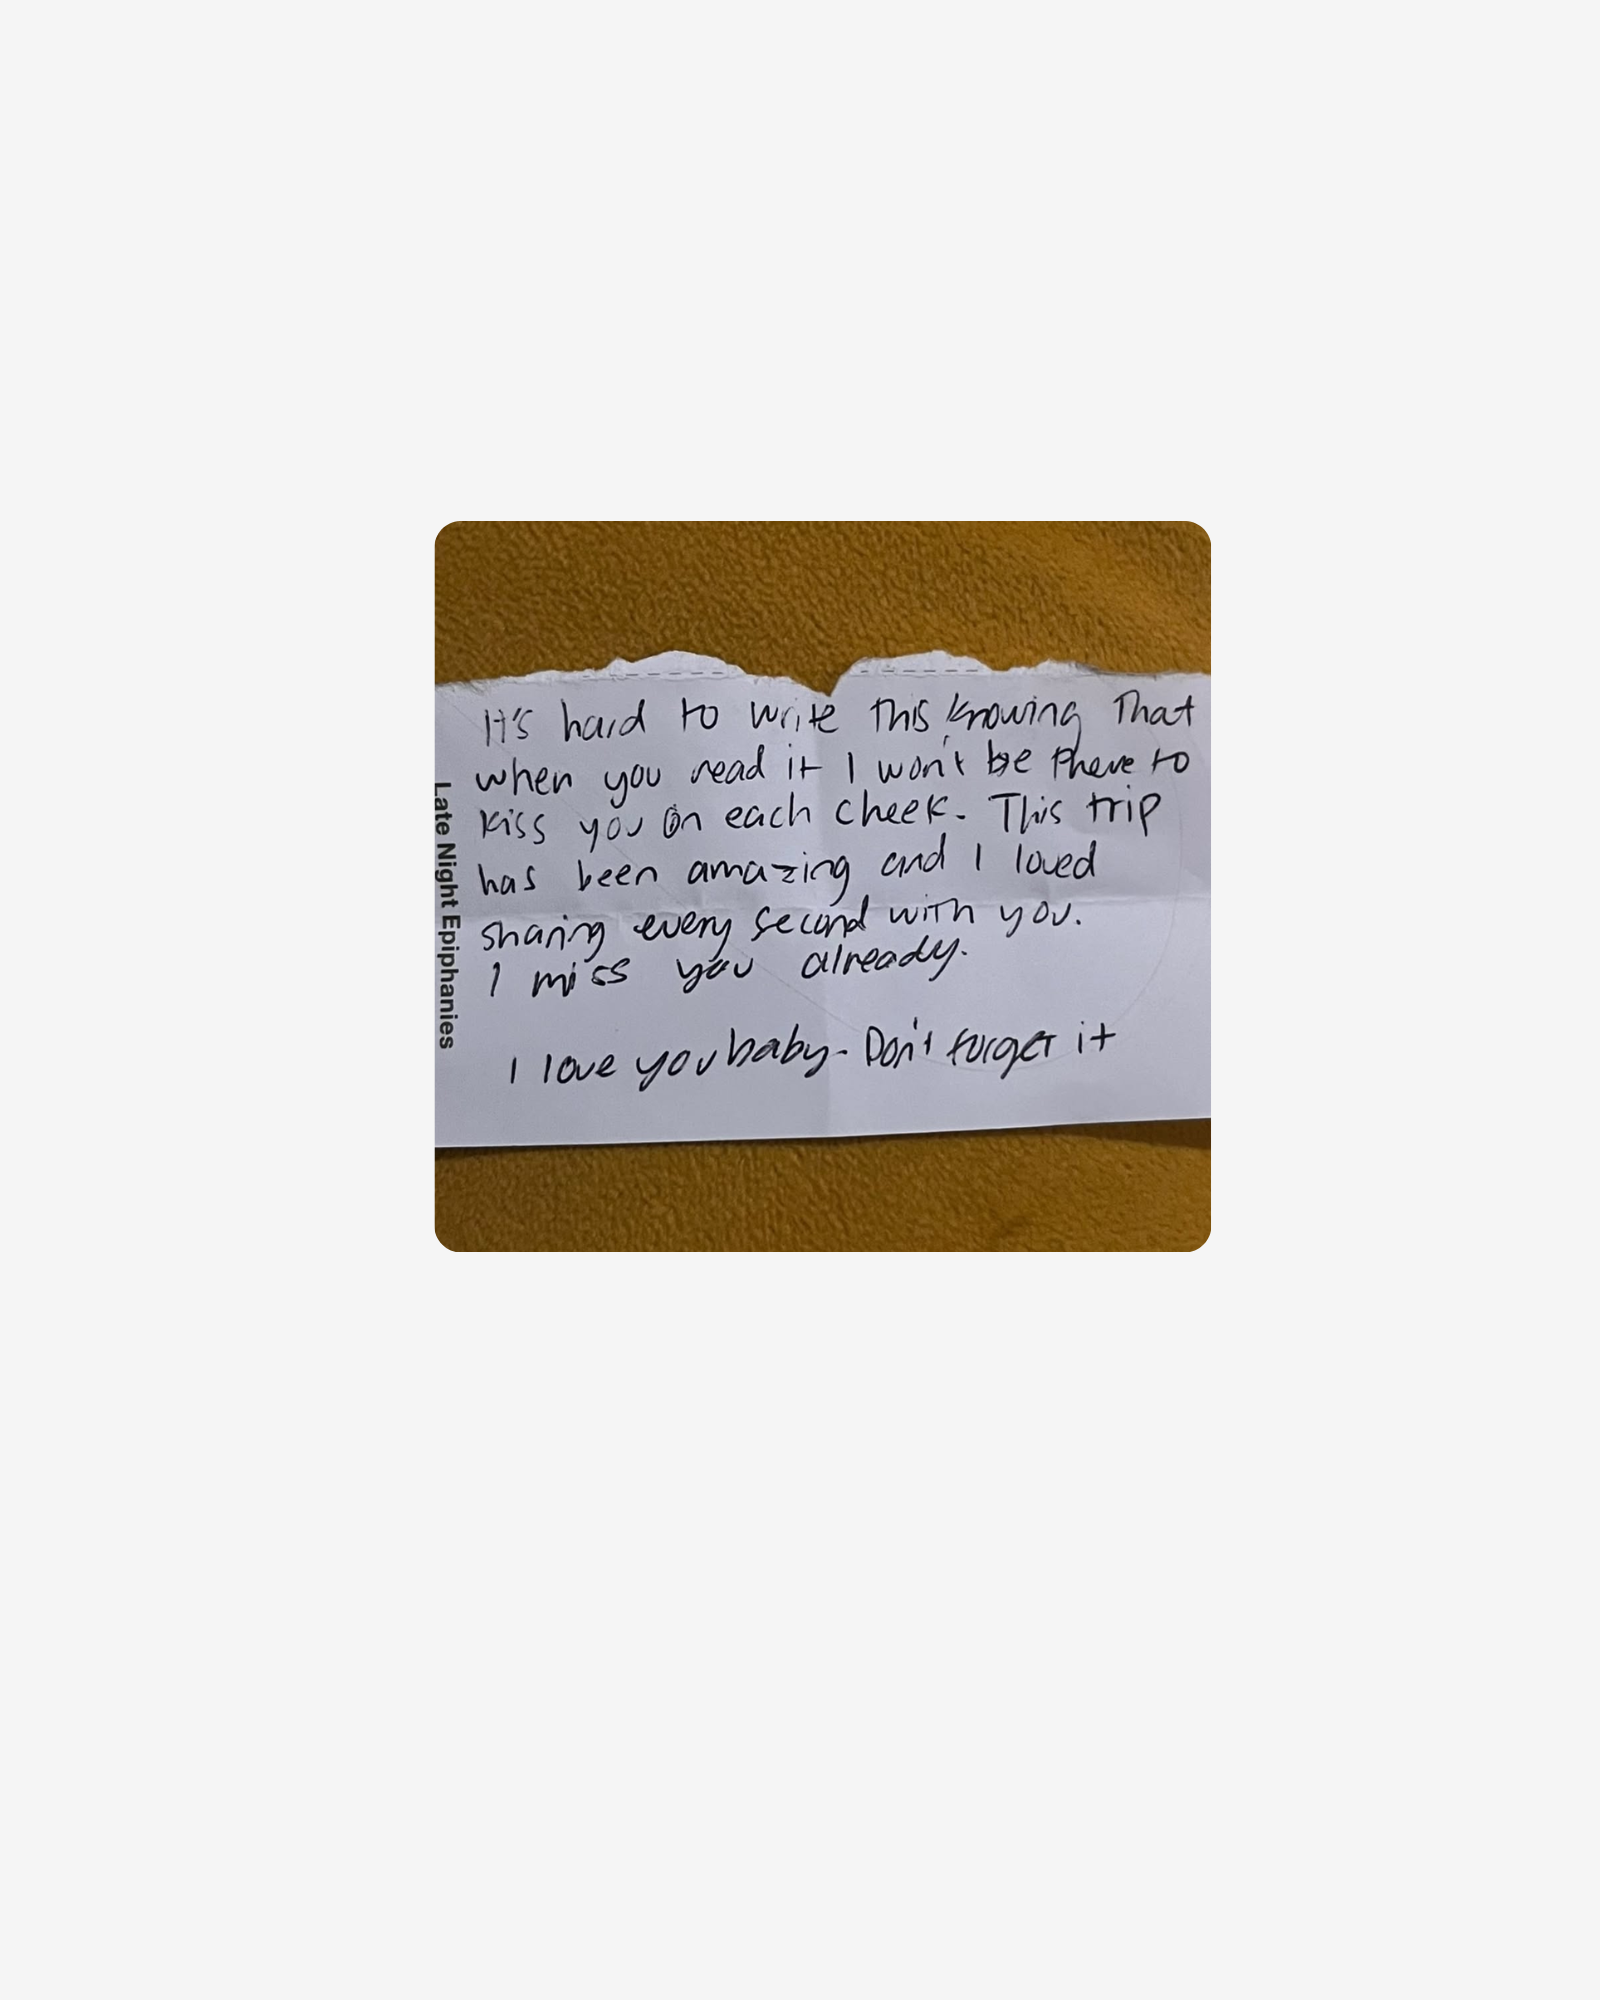 It's hard to write this knowing that
when you read it I won't be there to
kiss you on each cheek. This trip
has been amazing and I loved
sharing every second with you.
I miss you already.
I love you baby. Don't forget it
Late Night Epiphanies